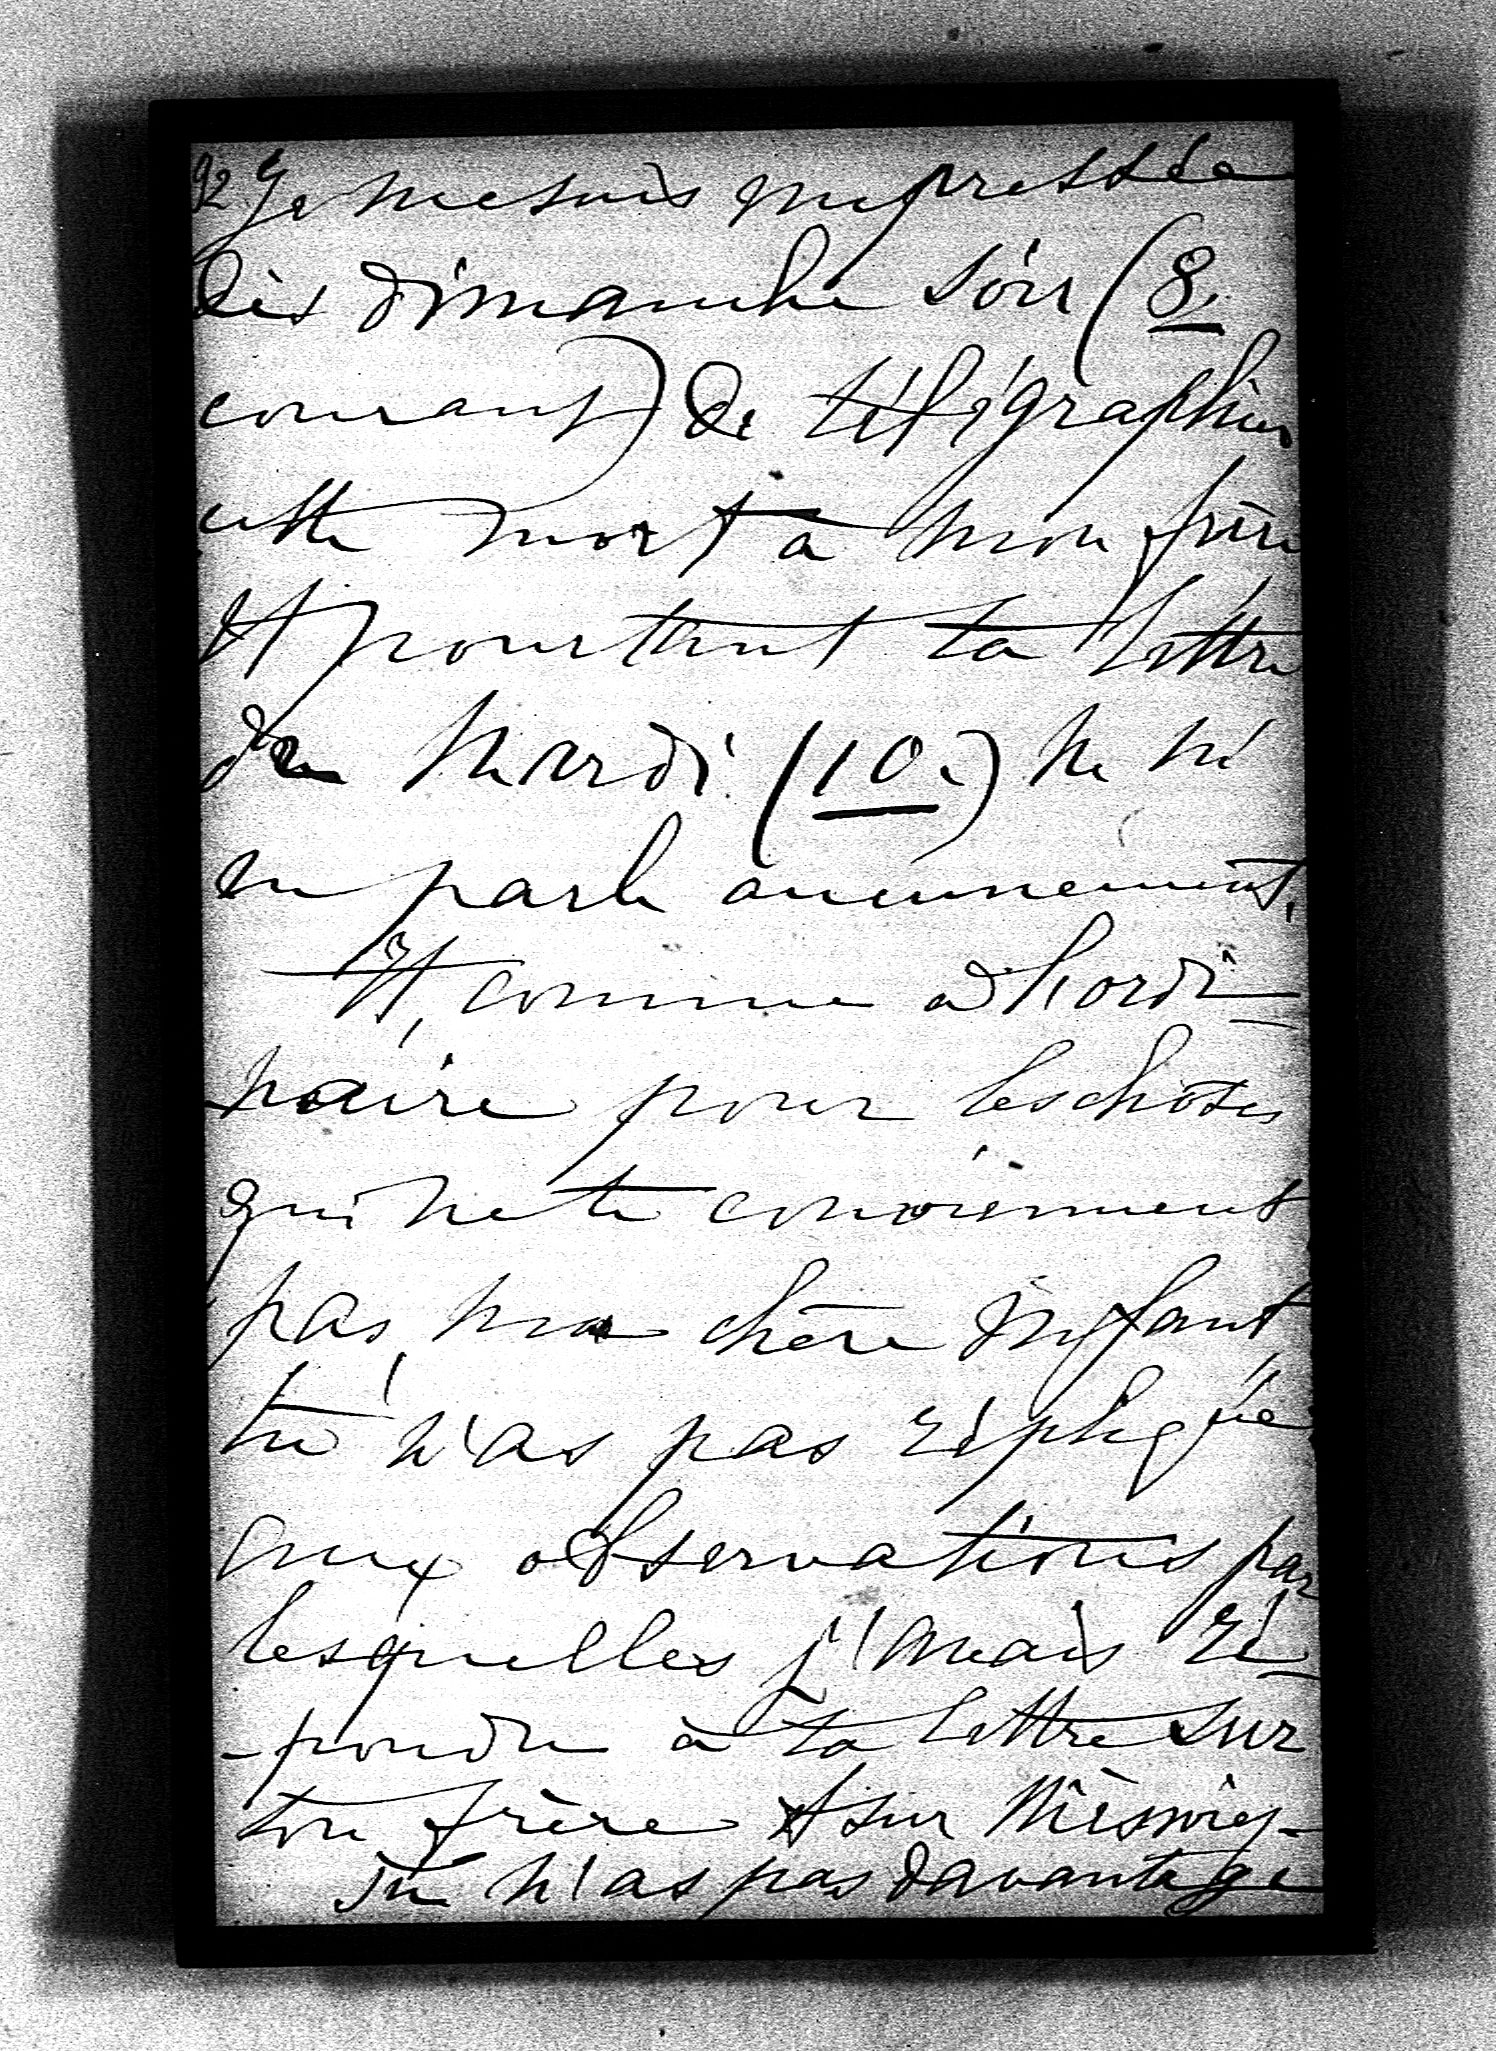 92 Je me suis empressée
dès dimanche soir (8,
courant) de télégraphier
cette mort à mon frère
et pourtant ta lettre
de mardi (10.) ne m'
en parle aucunement.
Et, comme à l'ordi-
naire pour les choses
qui ne te conviennent
pas, ma chère Enfant,
tu n'as pas répliquée
aux observations par
lesquelles j'avais ré-
-pondu à ta lettre sur
ton frère et sur
Tu n'as pas davantage